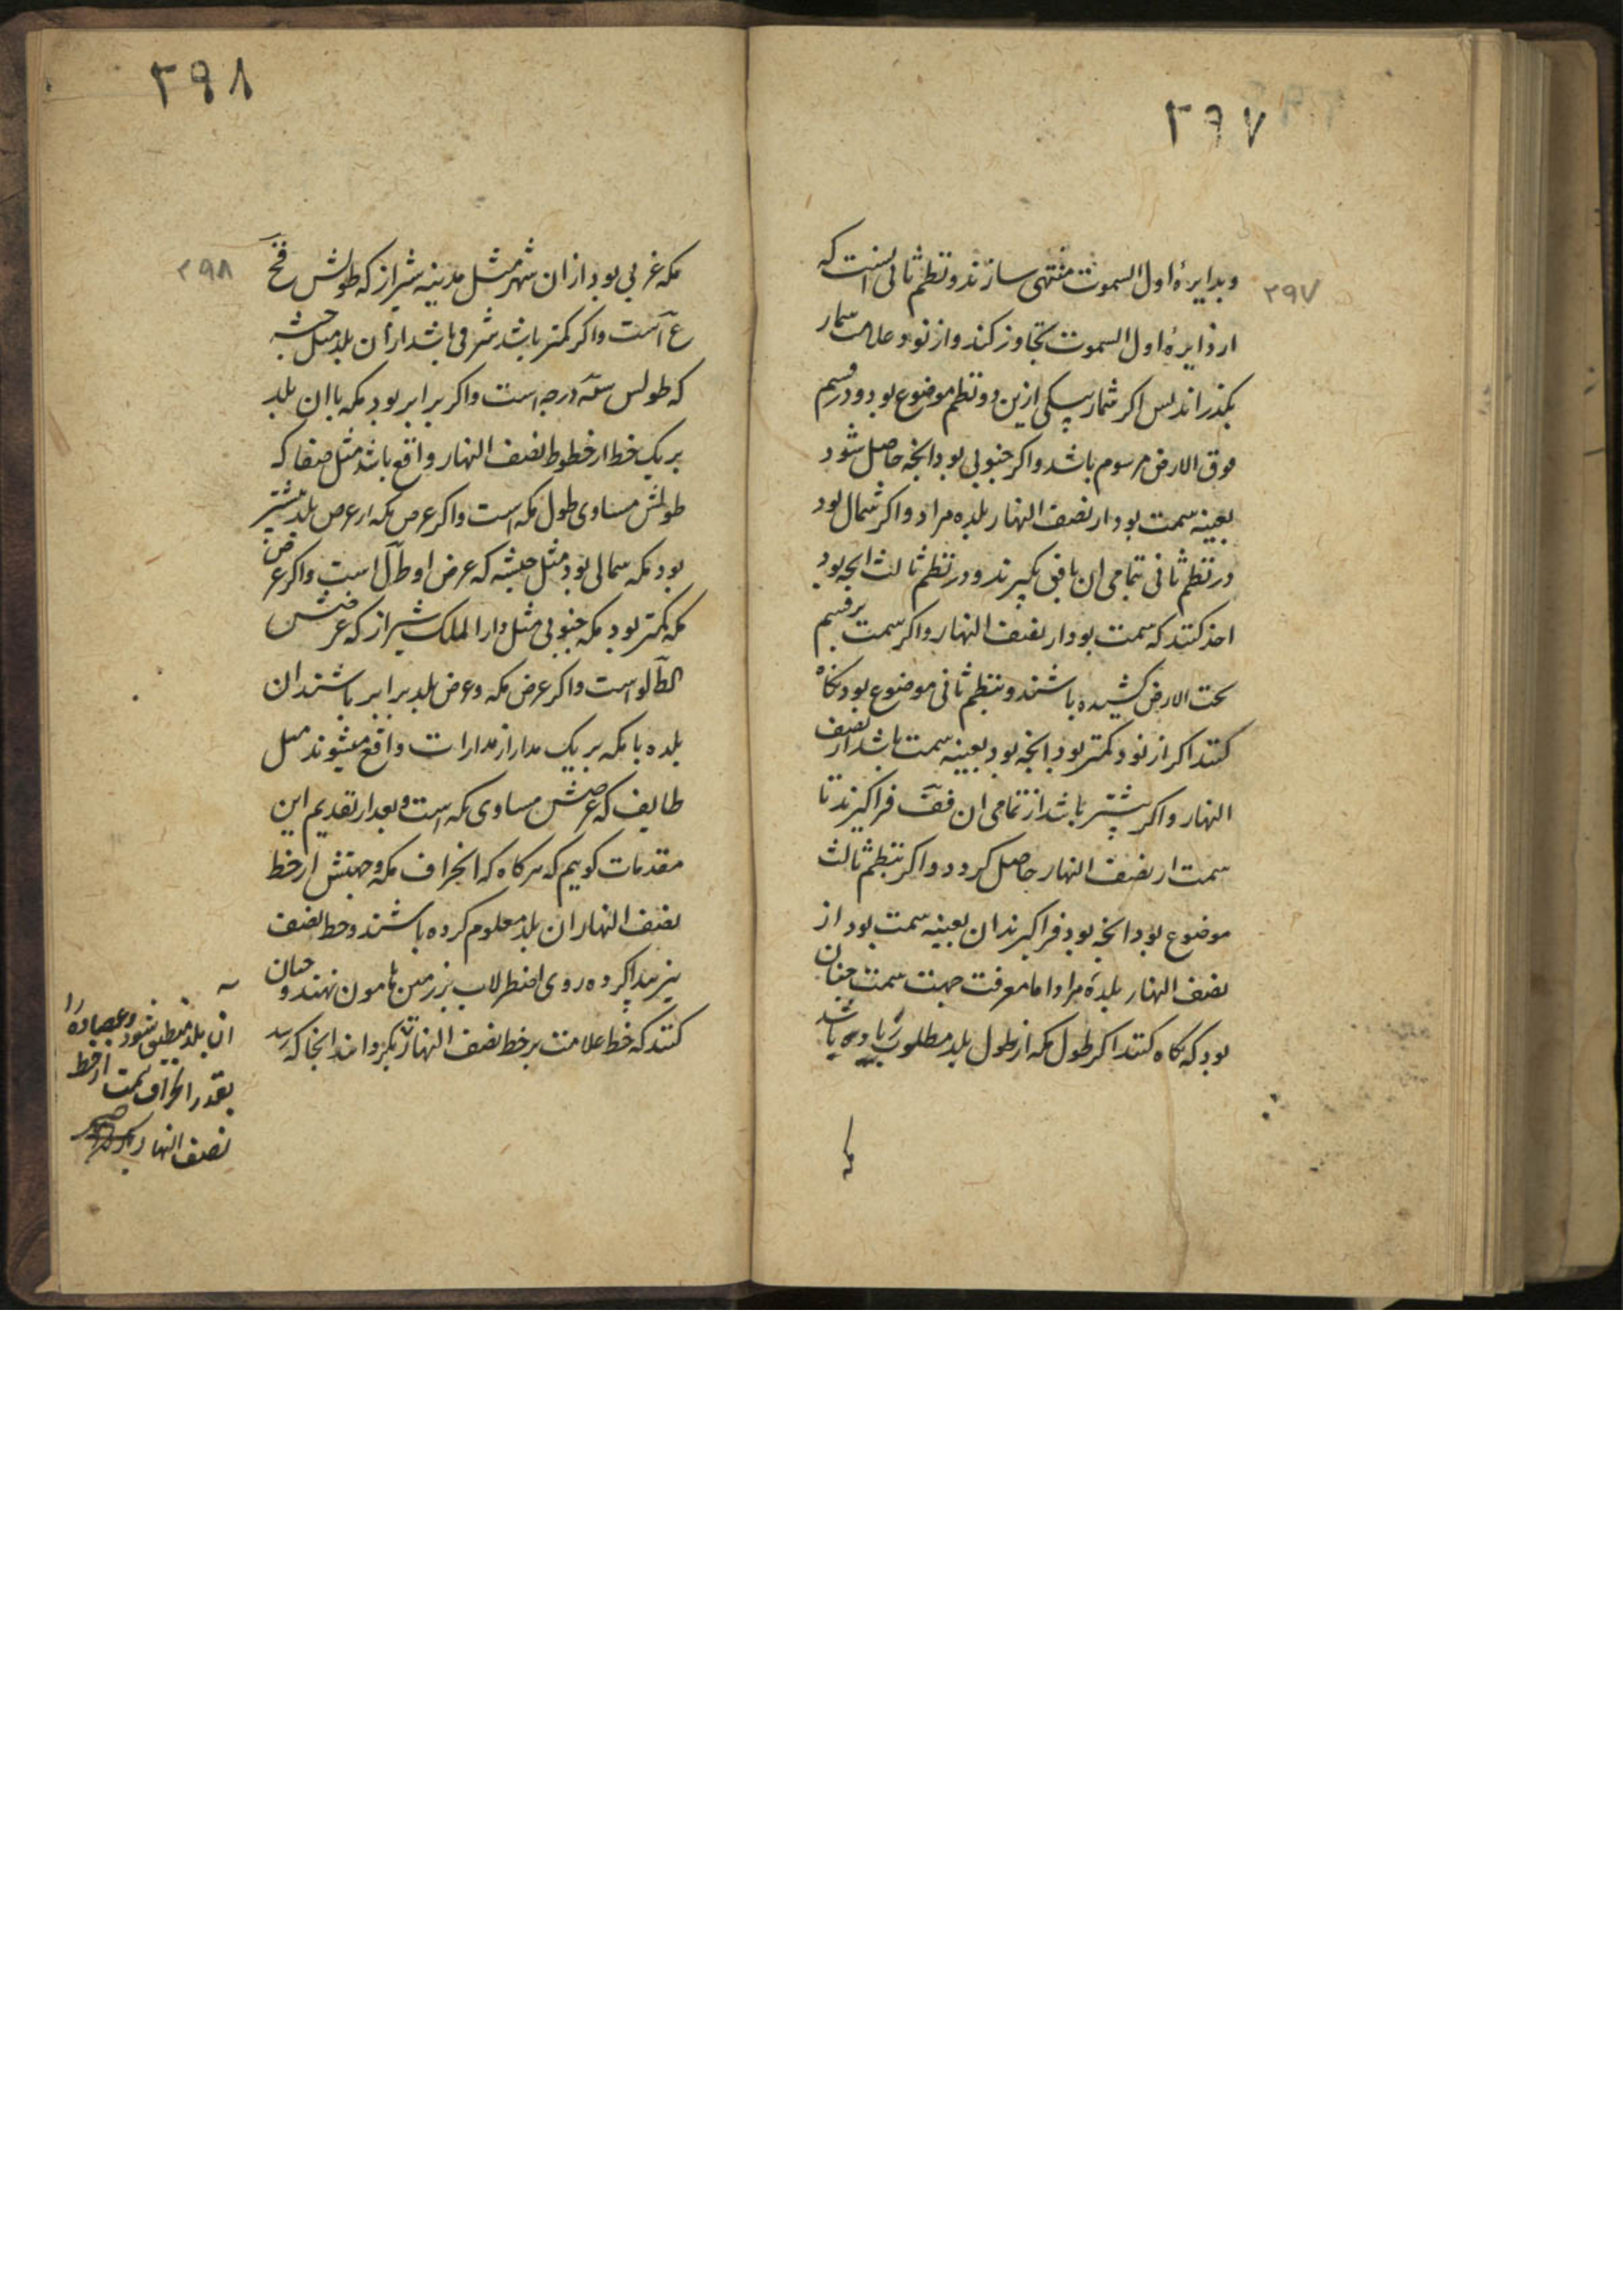 ۳۹۷
۳۹۷
وبدایرهٔ اول السموت منتهی سازند و نظم ثالی انست که
از دایرهٔ اول السموت تجاوز کند و از نود علامت شمار
بگذراند پس اگر شمار بیکی ازین دو نظم موضوع بود و در قسم
فوق الارض مرسوم باشد و اگر جنوبی بود انچه حاصل شود
بعینه سمت بود از نصف النهار بلده مراد و اگر شمال بود
در نظم ثانی تمامی ان باقی بگیرند و در نظم ثالث انچه بود
اخذ کنند که سمت بود از نصف النهار و اگر سمت بر قسم
تحت الارض کشیده باشند و بنظم ثانی موضوع بود نگاه
کنند اگر از نود کمتر بود انچه بود بعینه سمت باشد از نصف
النهار و اگر بیشتر باشد از تمامی ان قف فراگیرند تا
سمت از نصف النهار حاصل گردد و اگر بنظم ثالث
موضوع بود انچه بود فراگیرند ان بعینه سمت بود از
نصف النهار بلدهٔ مراد اما معرفت جهت سمت چنان
بود که نگاه کنند اگر طول مکه از طول بلد مطلوب زیاده باشد
مکه
۳۹۸
۳۹۸
مکه غربی بود ازان شهر مثل مدینه شیراز که طولش فح
ع است و اگر کمتر باشد شرقی باشد ازان بلد مثل حبشه
که طولس سه درجه است و اگر برابر بود مکه باان بلد
بر یک خط از خطوط نصف النهار واقع باشد مثل صنعا که
طولش مساوی طول مکه است و اگر عرض مکه از عرض بلد بیشتر
بود مکه شمالی بود مثل حبشه که عرض او طل است و اگر عرض
مکه کمتر بود مکه جنوبی مثل دار الملک شیراز که عرضش
کط لو است و اگر عرض مکه و عرض بلد برابر باشند ان
بلده با مکه بر یک مدار از مدارات واقع میشوند مثل
طایف که عرضش مساوی مکه است و بعد از تقدیم این
مقدمات گوییم که هرگاه که انحراف مکه و جهتش از خط
نصف النهار ان بلد معلوم کرده باشند و خط نصف
نیز پیدا کرده روی اصطرلاب بر زمین هامون نهند و چنان
کنند که خط علامت بر خط نصف النهار بگردانند انجا که رسد
ان بلد منطبق شود و عضاده را
بقدر انحراف سمت از خط
نصف النهار